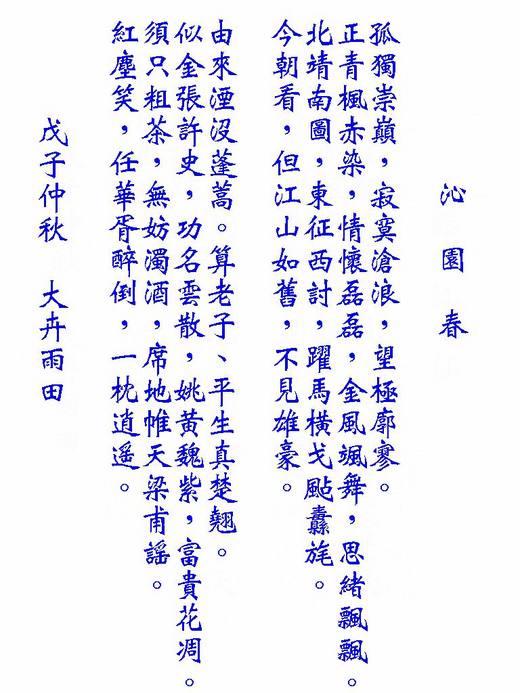 沁園春
孤獨崇巔，寂寞滄浪，望極廓寥。
正青楓赤染，情懷磊磊，金風颯舞，思緒飄飄。
北靖南圖，東征西討，躍馬橫戈颭纛旄。
今朝看，但江山如舊，不見雄豪。
由來湮沒蓬蒿。算老子、平生真楚翹。
似金張許史，功名雲散，姚黃魏紫，富貴花凋。
須只粗茶，無妨濁酒，席地帷天梁甫謠。
紅塵笑，任華胥醉倒，一枕逍遙。
戊子仲秋 大卉雨田